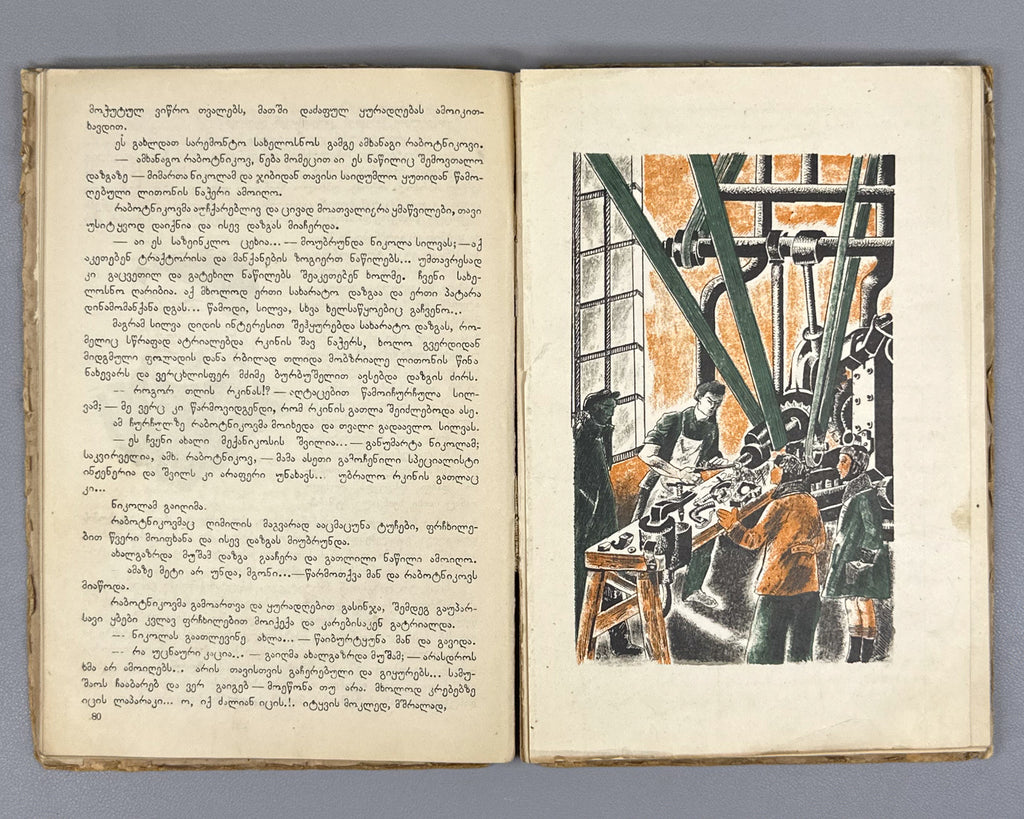 მოჭუტულ ვიწრო თვალებს, მათში დაძაფულ ყურადღებას ამოიკით-
ხავდით.
ეს გახლდათ სარემონტო სახელოსნოს გამგე ამხანაგი რაბოტნიკოვი.
— ამხანაგო რაბოტნიკოვ, ნება მომეცით აი ეს ნაწილიც შემოვთალო
დაზგაზე — მიმართა ნიკოლამ და ჯიბიდან თავისი საიდუმლო ყუთიდან წამო-
ღებული ლითონის ნაჭერი ამოიღო.
რაბოტნიკოვმა აუჩქარებლივ და ცივად მოათვალიერა ყმაწვილები, თავი
უსიტყვოდ დაიქნია და ისევ დაზგას მიაჩერდა.
— აი ეს საზეინკლო ცეხია... — მოუბრუნდა ნიკოლა სილვას; — აქ
აკეთებენ ტრაქტორისა და მანქანების ზოგიერთ ნაწილებს... უმთავრესად
კი გაცვეთილ და გატეხილ ნაწილებს შეაკეთებენ ხოლმე. ჩვენი სახე-
ლოსნო ღარიბია. აქ მხოლოდ ერთი სახარატო დაზგაა და ერთი პატარა
დინამომანქანა დგას... წამოდი, სილვა, სხვა ხელსაწყოებიც გაჩვენო...
მაგრამ სილვა დიდის ინტერესით შეჰყურებდა სახარატო დაზგას, რო-
მელიც სწრაფად ატრიალებდა რკინის შავ ნაჭერს, ხოლო გვერდიდან
მიდგმული ფოლადის დანა რბილად თლიდა მობზრიალე ლითონის წინა
ნახევარს და ვერცხლისფერ მძიმე ბურბუშელით ავსებდა დაზგის ძირს.
— როგორ თლის რკინას!? — აღტაცებით წამოიჩურჩულა სილ-
ვამ; — მე ვერც კი წარმოვიდგენდი, რომ რკინის გათლა შეიძლებოდა ასე.
ამ ჩურჩულზე რაბოტნიკოვმა მოიხედა და თვალი გადაავლო სილვას.
— ეს ჩვენი ახალი მექანიკოსის შვილია... — განუმარტა ნიკოლამ;
საკვირველია, ამხ. რაბოტნიკოვ, — მამა ასეთი გამოჩენილი სპეციალისტი
ინჟენერია და შვილს კი არაფერი უნახავს... უბრალო რკინის გათლაც
კი...
ნიკოლამ გაიღიმა.
რაბოტნიკოვმაც ღიმილის მაგვარად ააცმაცუნა ტუჩები, ფრჩხილე-
ბით წვერი მოიფხანა და ისევ დაზგას მიუბრუნდა.
ახალგაზრდა მუშამ დაზგა გააჩერა და გათლილი ნაწილი ამოიღო.
— ამაზე მეტი არ უნდა, მგონი... — წარმოთქვა მან და რაბოტნიკოვს
მიაწოდა.
რაბოტნიკოვმა გამოართვა და ყურადღებით გასინჯა, შემდეგ გაუპარ-
სავი ყბები კვლავ ფრჩხილებით მოიქექა და კარებისაკენ გატრიალდა.
— ნიკოლას გაათლევინე ახლა... — წაიბურტყუნა მან და გავიდა.
— რა უცნაური კაცია... — გაიღმა ახალგაზრდა მუშამ; — არასდროს
ხმა არ ამოიღებს... არის თავისთვის გაჩერებული და გიყურებს... სამუ-
შაოს ჩააბარებ და ვერ გაიგებ — მოეწონა თუ არა. მხოლოდ კრებებზე
იცის ლაპარაკი... ო, იქ ძალიან იცის.!. იტყვის მოკლედ, მშრალად,
80